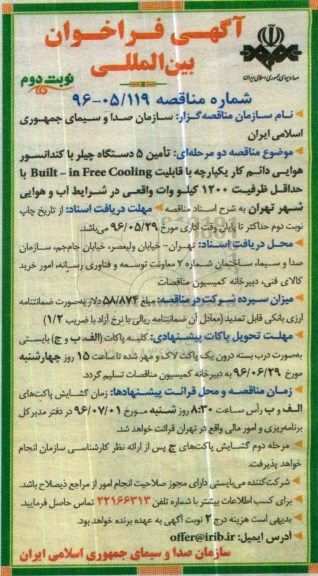 آگهی فراخوان
بین‌المللی
صدا و سیمای جمهوری اسلامی ایران
نوبت دوم
شماره مناقصه ۹۶-۰۵/۱۱۹
نام سازمان مناقصه‌گزار: سازمان صدا و سیمای جمهوری
اسلامی ایران
موضوع مناقصه دو مرحله‌ای: تأمین ۵ دستگاه چیلر با کندانسور
هوایی دائم کار یکپارچه با قابلیت Built - in Free Cooling با
حداقل ظرفیت ۱۲۰۰ کیلو وات واقعی در شرایط آب و هوایی
شهر تهران به شرح اسناد مناقصه مهلت دریافت اسناد: از تاریخ چاپ
نوبت دوم حداکثر تا پایان وقت اداری مورخ ۹۶/۰۵/۲۹ می‌باشد.
محل دریافت اسناد: تهران - خیابان ولیعصر، خیابان جام‌جم، سازمان
صدا و سیما، ساختمان شماره ۲ معاونت توسعه و فناوری رسانه، امور خرید
کالای فنی، دبیرخانه کمیسیون مناقصات
میزان سپرده شرکت در مناقصه: مبلغ ۵۸/۸۷۴ دلار به‌صورت ضمانتنامه
ارزی بانکی قابل تمدید (معادل آن ضمانتنامه ریالی با نرخ آزاد با ضریب ۱/۲)
مهلت تحویل پاکات پیشنهادی: کلیه پاکات (الف، ب و ج) بایستی
به‌صورت درب بسته درون یک پاکت لاک و مهر شده تا ساعت ۱۵ روز چهارشنبه
مورخ ۹۶/۰۶/۲۹ به دبیرخانه کمیسیون مناقصات تسلیم گردد.
زمان مناقصه و محل قرائت پیشنهادها: زمان گشایش پاکت‌های
الف و ب رأس ساعت ۸:۳۰ روز شنبه مورخ ۹۶/۰۷/۰۱ در دفتر مدیرکل
برنامه‌ریزی و امور مالی واقع در تهران قرائت خواهد شد.
مرحله دوم گشایش پاکت‌های ج پس از ارائه نظر کارشناسی سازمان انجام
خواهد پذیرفت.
شرکت‌کننده می‌بایستی دارای مجوز صلاحیت انجام امور از مراجع ذیصلاح باشد.
برای کسب اطلاعات بیشتر با شماره تلفن ۲۲۱۶۶۳۱۳ تماس حاصل فرمایید.
بدیهی است هزینه درج ۲ نوبت آگهی به عهده برنده خواهد بود.
آدرس ایمیل: offer@irib.ir
سازمان صدا و سیمای جمهوری اسلامی ایران